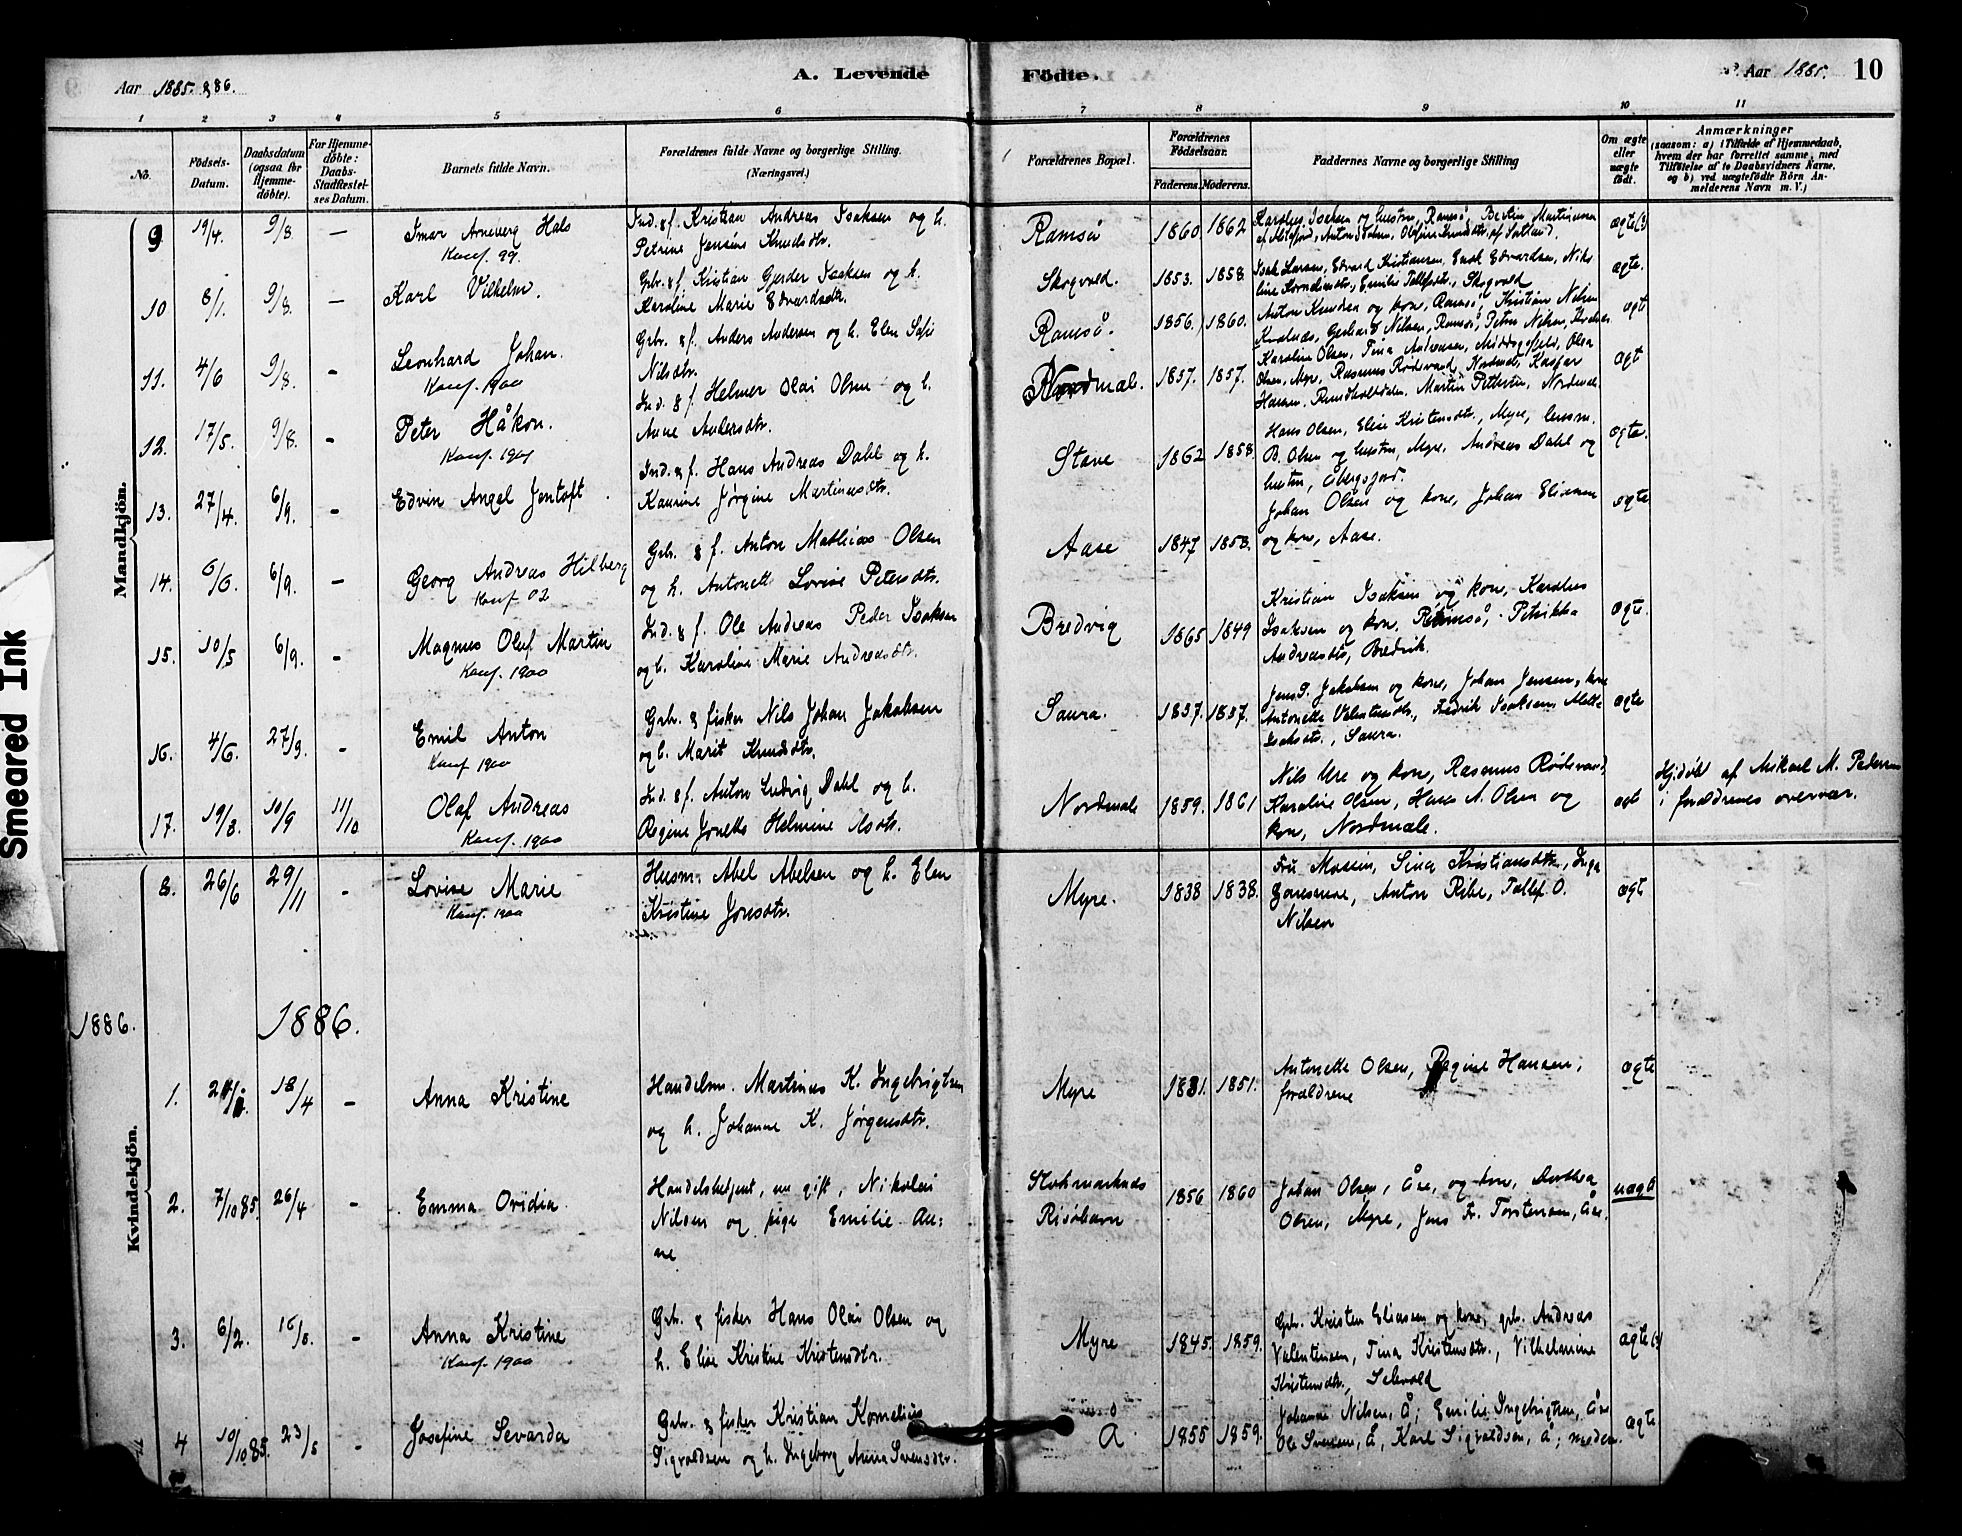 Smeared Ink
Aar 1885. & 86.
A. Levende
Födte.
Aar 1885.
10
1 2 3 4 5 6 7 8 9 10 11
No.
Födsels-Datum.
Daabsdatum (ogsaa for Hjemme-döbte).
For Hjemme-döbte: Daabs-Stadfæstel-ses Datum.
Barnets fulde Navn.
Forældrenes fulde Navne og borgerlige Stilling.
(Næringsvei.)
Forældrenes Bopæl.
Forældrenes Födselsaar.
Faderens. Moderens.
Faddernes Navne og borgerlige Stilling
Om ægte eller uægte födt.
Anmærkninger
(saasom: a) i Tilfælde af Hjemmedaab,
hvem der har forrettet samme, med
Tilföielse af to Daabsvidners Navne,
og b) ved uægtefödte Börn An-
melderens Navn m. V.)
Mandkjön.
9 19/4. 9/8. — Imar Arneberg Hals
Konf. 99.
Ind. & f. Kristian Andreas Isaksen og h.
Petrine Jensine Knudsdtr.
Ramsö 1860 1862
ægte
10 8/1. 9/8. — Karl Vilhelm.
Grbr. & f. Kristian Gjerder Isaksen og h.
Karoline Marie Edvardsdtr.
Skogvold. 1853. 1858
Isak Larsen, Edvard Kristiansen, Enok Edvardsen,
ægte.
11. 4/6 9/8. - Leonhard Johan.
Konf. 1900
Grbr. & f. Anders Andersen og h. Elen Sofie
Nilsdtr.
Ramsö. 1856. 1860.
Anton Knudsen og kone, Ramsö, Kristian Nilsen
Gerhard Nilsen, Ramsö, Petrus Nilsen,
ægt
12. 17/5. 9/8. - Peter Håkon.
Konf. 1901
Ind. & f. Helmer Olai Olsen og h.
Anne Andersdtr.
Nordmæl. 1857. 1857.
Karoline Olsen, Tina Andreasen,
Olsen, Myre, Rasmus Rödsvand, Nordmæle, Kaspar
Hansen, Martin Pettersen, Nordmæle.
ægt
13. 27/4. 6/9. - Edvin Angel Jentoft.
Ind. & f. Hans Andreas Dahl og h.
Kaurine Jørgine Martinusdtr.
Stave 1862 1858
Hans Olsen, Elise Kristensdtr., Myre, husm.
B. Olsen og hustru, Myre, Andreas Dahl og
hustru,
ægte.
14. 6/6. 6/9. - Georg Andreas Hilberg
Konf 02
Grbr. & f. Anton Mathias Olsen
og h. Antonette Lovise Petersdtr.
Aase 1847 1858.
Johan Olsen og kone, Johan Eliassen
og kone, Aase.
ægte
15. 10/5 6/9. - Magnus Oluf Martin
Konf. 1900
Ind. & f. Ole Andreas Peder Isaksen
og h. Karoline Marie Andreasdtr.
Bredvig 1865 1849
Kristian Isaksen og kone, Karolius
Isaksen og kone, Ramsö, Petrikka
Andreasdtr, Bredvik.
ægte.
16. 4/6. 27/9. - Emil Anton
Konf 1900
Grbr. & fisker Nils Johan Jakobsen
og h. Marit Knudsdtr.
Saura. 1857. 1857.
Jens S. Jakobsen og kone, Johan Jensen, kone
Antonette Valentinsdtr., Fredrik Isaksen, Mette
Isaksdtr., Saura.
ægte
17. 19/8. 10/9 11/10 Olaf Andreas
Konf. 1900
Ind. & f. Anton Ludvig Dahl og h.
Regine Jonette Helmine Olsdtr.
Nordmæle 1859. 1861
Nils Ure og kone, Rasmus Rödsvand,
Karoline Olsen, Hans A. Olsen og
kone, Nordmæle.
ægt
Hjdöbt af Mikael M. Pedersen
i forældrenes overvær.
Kvindekjön.
8. 26/6 29/11 - Lovise Marie
Konf. 1900
Husm. Abel Abelsen og h. Elen
Kristine Jonsdtr.
Myre. 1838 1838.
Fru Mossin, Sina Kristiansdtr., Inga
Anton Ribe, Tollef O.
Nilsen
ægt
1886. 1886.
1. 18/4 - Anna Kristine
Handelsm. Martinus K. Ingebrigtsen
og h. Johanne K. Jørgensdtr.
Myre 1831. 1851.
Antonette Olsen, Regine Hansen;
forældrene
ægte
2. 7/10 85. 26/4 - Emma Ovidia.
Handelsbetjent, un gift, Nikolai
Nilsen og pige Emilie An:
ne
Stokmarknæs
Risöhavn 1856 1860
Johan Olsen, Åse, og kone, Dorthea
Olsen, Myre, Jens Fr. Torstensen, Åse.
uægt
3. 6/2. 16/ - Anna Kristine
Konf. 1900
Grbr. & fisker Hans Olai Olsen og
h. Elise Kristine Kristensdtr.
Myre 1845. 1859.
Grbr. Kristen Eliassen og kone, grbr. Andreas
Valentinsen, Tina Kristensdtr., Vilhelmine
Kristensdtr., Selvold
ægte
4 10/10 85. 23/ - Josefine Sevarda
Grbr. & fisker Kristian Kornelius
Sigvaldsen og h. Ingeborg Anna Svensdtr.
Å 1855 1859.
Johanna Nilsen, Å; Emilie Ingebrigtsen, Åse
Ole Svensen, Å, Karl Sigvaldsen, Å; moderen.
ægte